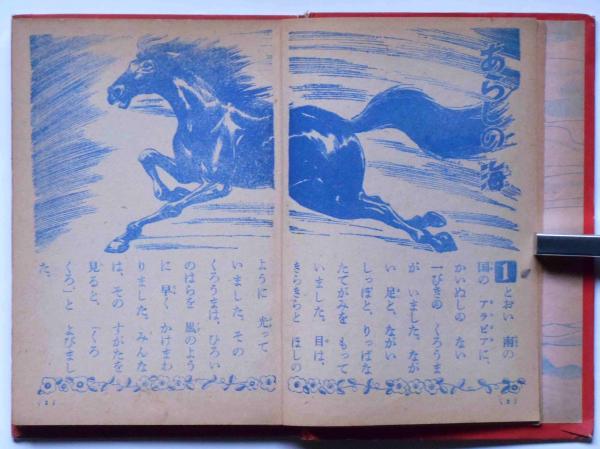 あらしの海
1 とおい 南の
国の アラビアに、
かいぬしの ない
一ぴきの くろうま
が いました。なが
い 足と、ながい
しっぽと、りっぱな
たてがみを もって
いました。目は、
きらきらと ほしの
ように 光って
いました。その
くろうまは、ひろい
のはらを 風のよう
に 早く かけまわ
りました。みんな
は、その すがたを
見ると、「くろ
くろ」と よびまし
た。